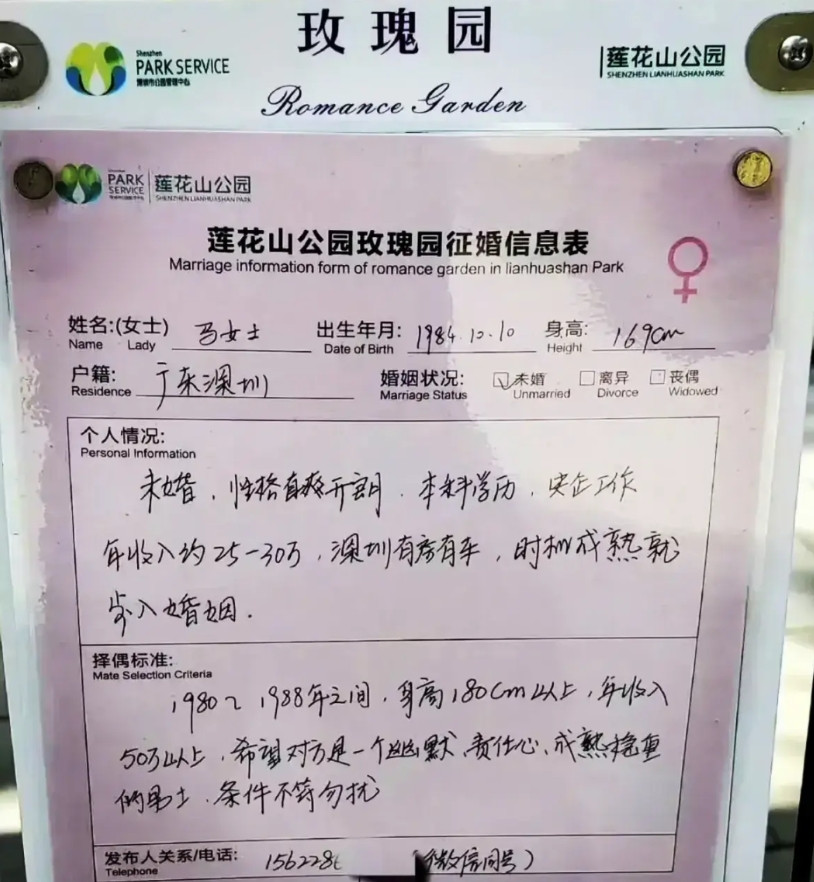 玫瑰园
Shenzhen
PARK SERVICE
深圳市公园管理中心
莲花山公园
SHENZHEN LIANHUASHAN PARK
Romance Garden
PARK SERVICE
莲花山公园
SHENZHEN LIANHUASHAN PARK
莲花山公园玫瑰园征婚信息表
Marriage information form of romance garden in lianhuashan Park
♀
姓名:(女士) 马女士 出生年月: 1984.10.10 身高: 169cm
Name Lady Date of Birth Height
户籍: 广东深圳 婚姻状况: ☑未婚 □离异 □丧偶
Residence Marriage Status Unmarried Divorce Widowed
个人情况:
Personal Information
未婚，性格直爽开朗，本科学历，央企工作
年收入约25-30万，深圳有房有车，时机成熟就
步入婚姻.
择偶标准:
Mate Selection Criteria
1980~1988年之间，身高180cm以上，年收入
50万以上，希望对方是一个幽默、责任心、成熟稳重
的男士，条件不符勿扰
发布人关系/电话: 156228 (微信同号)
Telephone